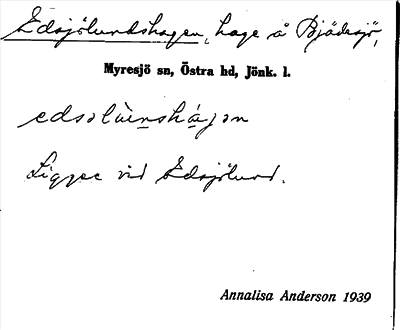 Edsjölundshagen, hage å Bjädesjö,
Myresjö sn, Östra hd, Jönk. l.
edsəlùnshá̱gən
Ligger vid Edsjölund.
Annalisa Anderson 1939